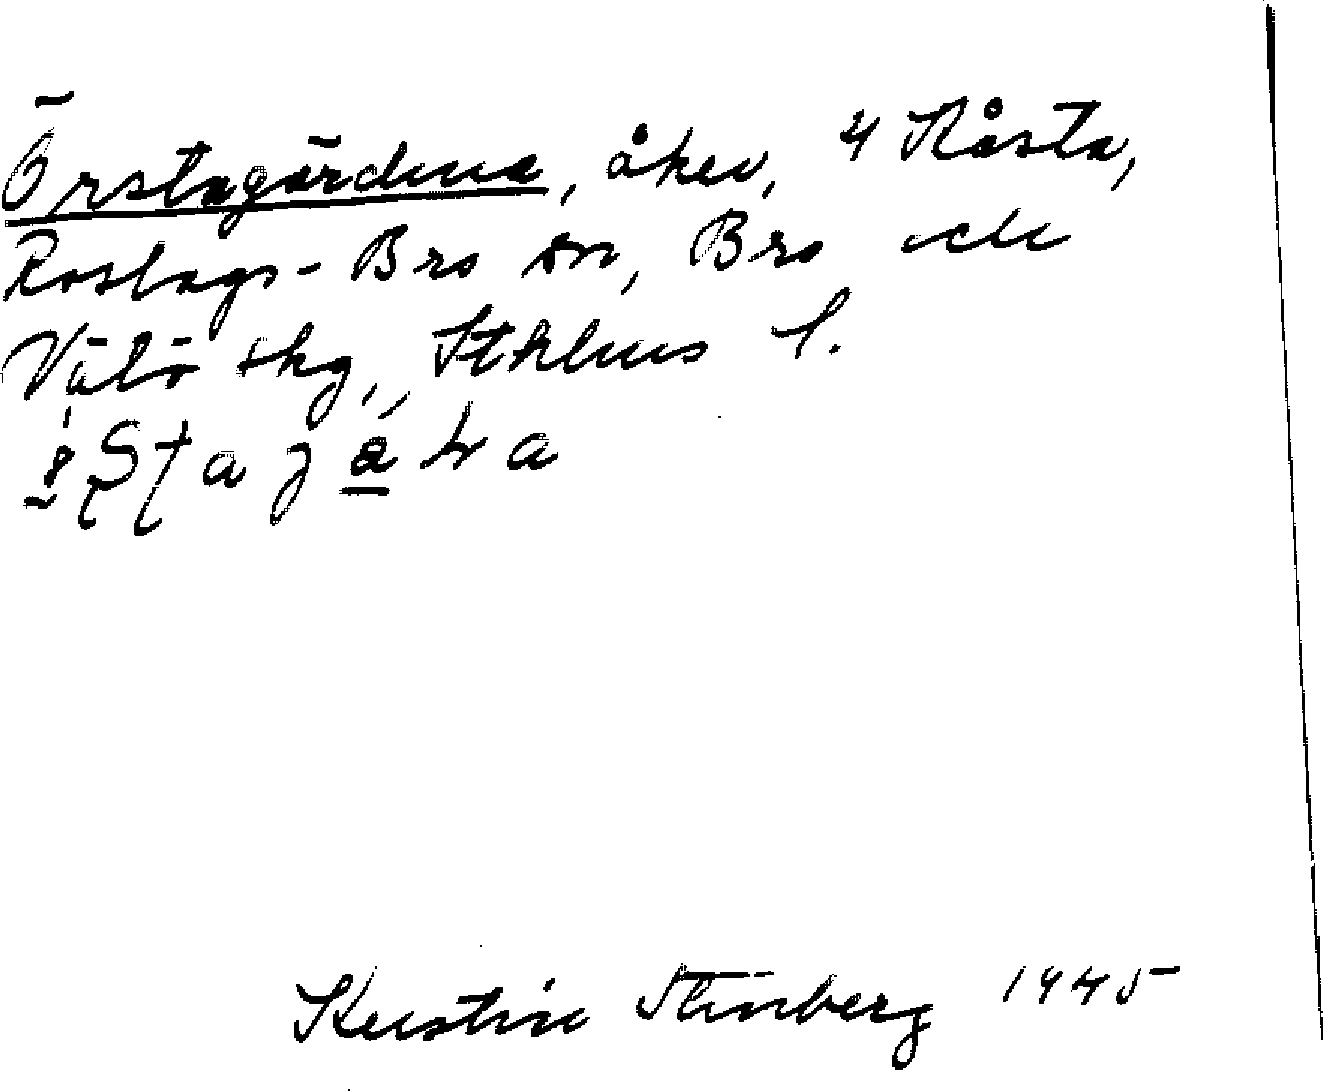 Örstagärdena, åker, 4 Råsta,
Roslags-Bro sn, Bro och
Vätö skg, Sthlms l.
Kerstin Stenberg 1945